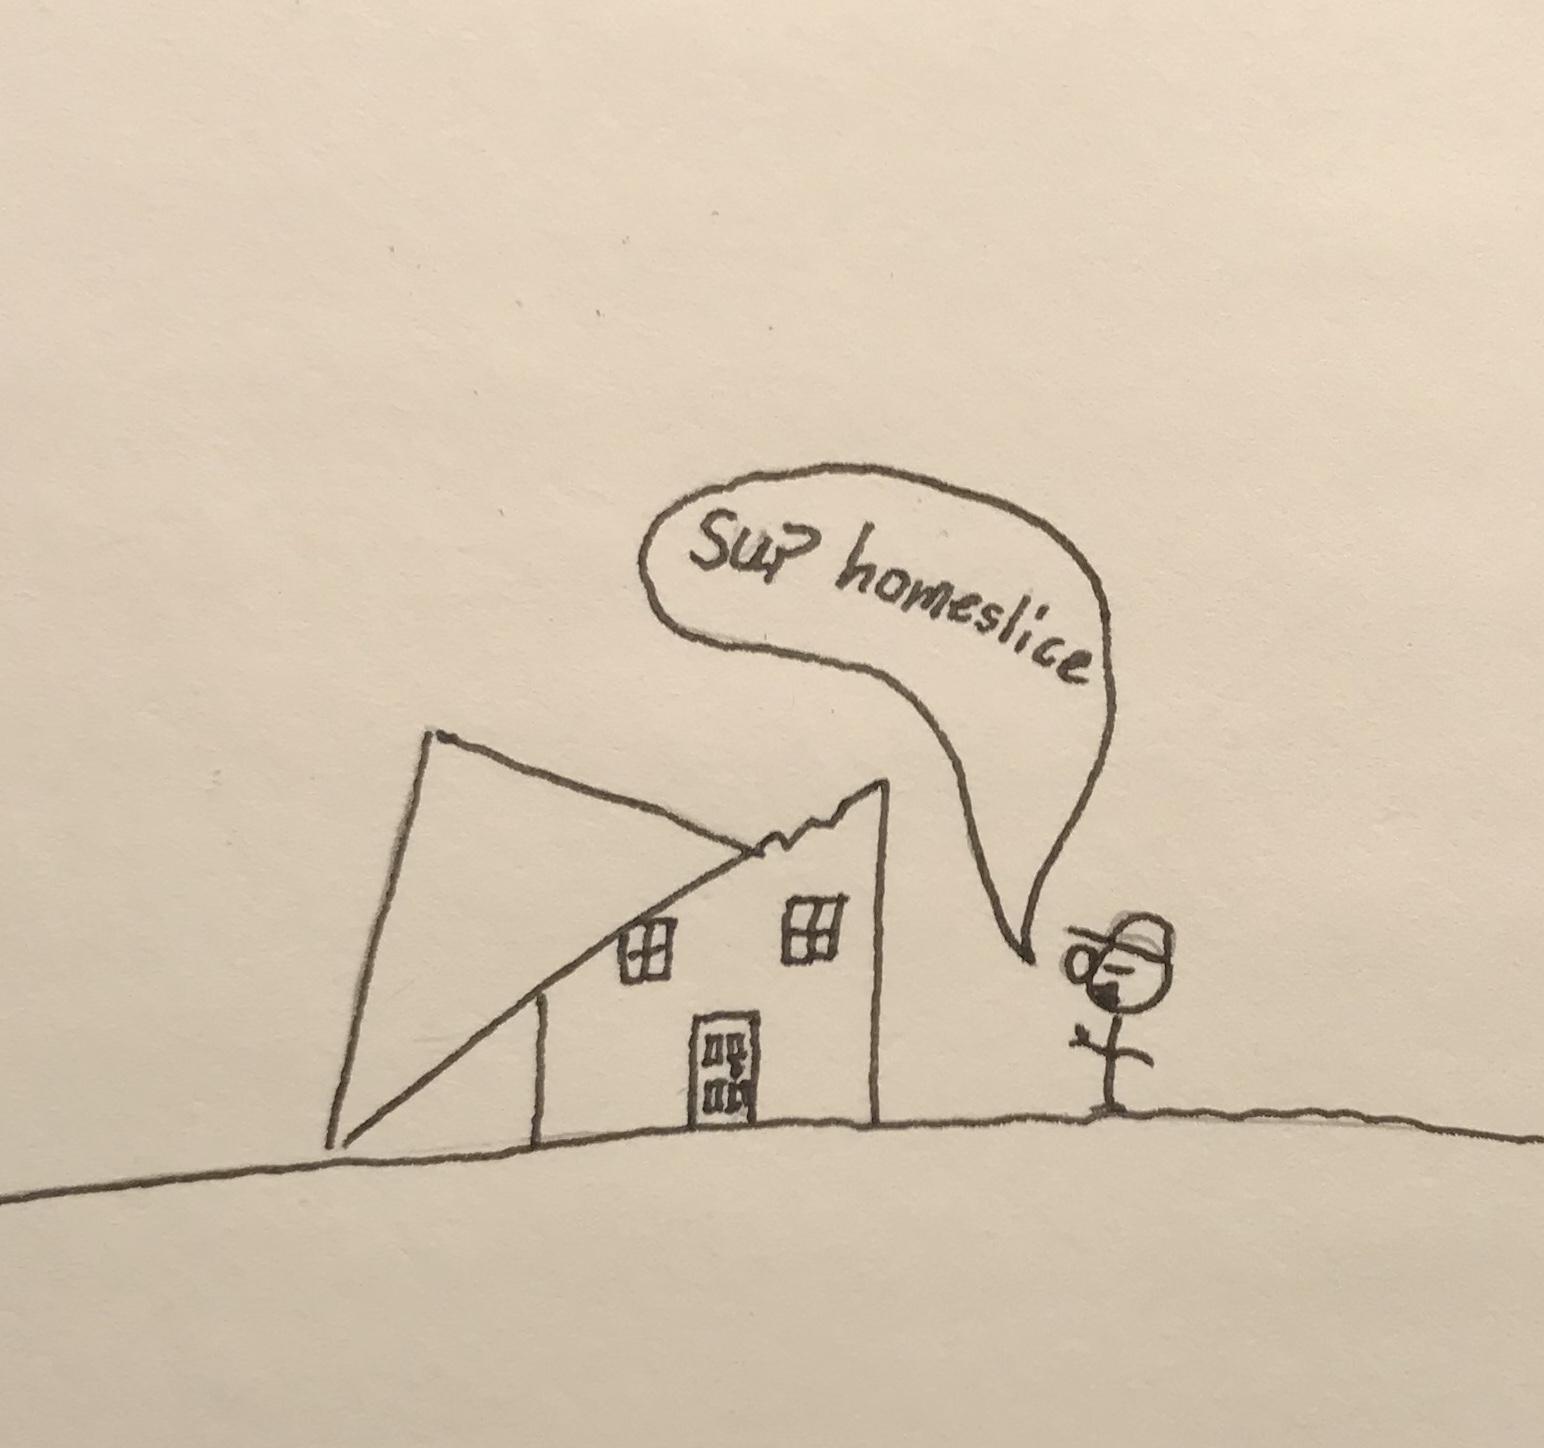 Sup homeslice